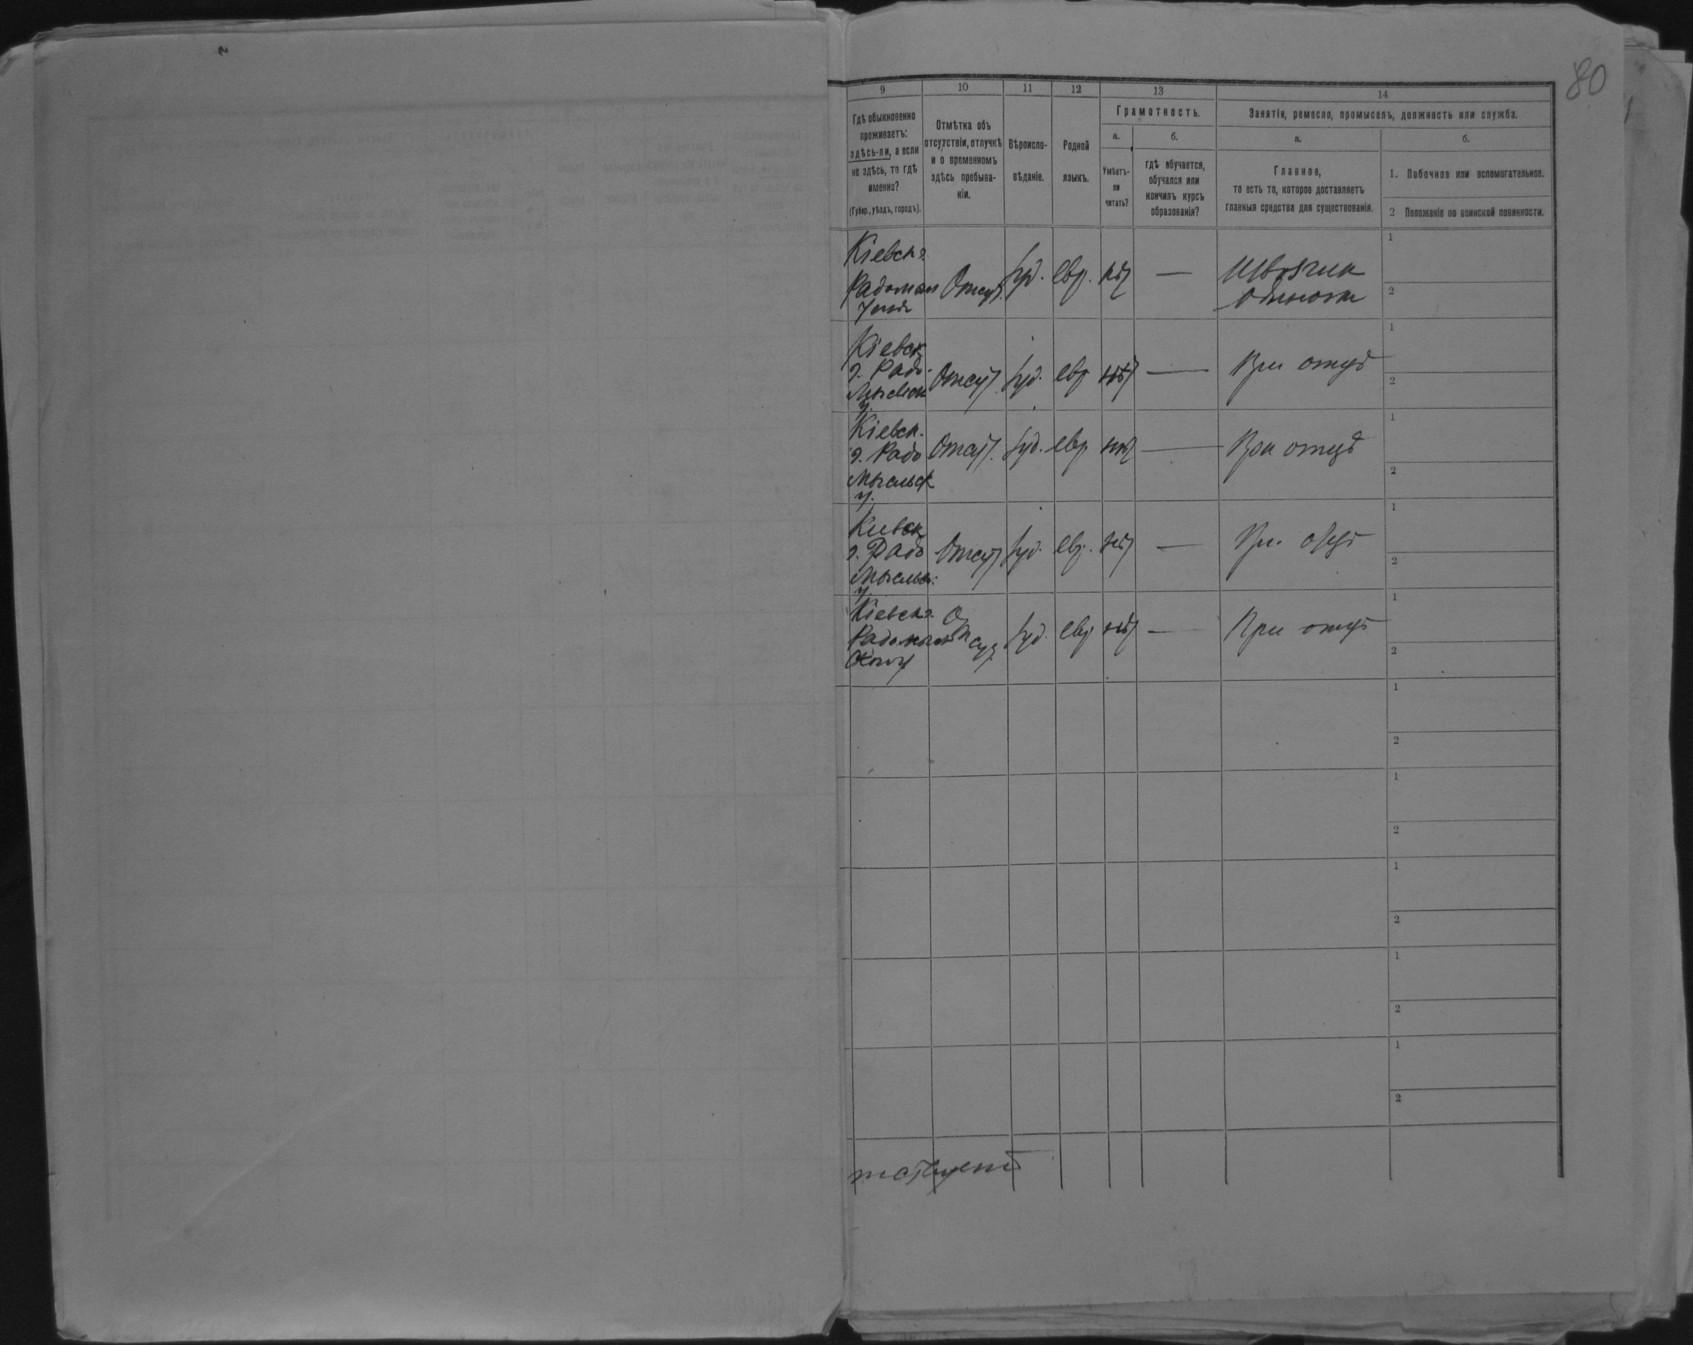 80
9
10
11
12
13
14
Гдѣ обыкновенно
проживаетъ:
здѣсь-ли, а если
не здѣсь, то гдѣ
именно?
(Губер., уѣздъ, городъ).
Отмѣтка объ
отсутствіи, отлучкѣ
и о временномъ
здѣсь пребыва-
ніи.
Вѣроиспо-
вѣданіе.
Родной
языкъ.
Грамотность.
а.
Умѣетъ-
ли
читать?
б.
гдѣ обучается,
обучался или
кончилъ курсъ
образованія?
Занятія, ремесло, промыселъ, должность или служба.
а.
Главное,
то есть то, которое доставляетъ
главныя средства для существованія.
б.
1. Побочное или вспомогательное.
2 Положеніе по воинской повинности.
Кіевск г.
Отсут. іуд. евр. нѣт —
1
2
Кіевск
г. Радо-
Отсут. іуд. евр нѣт — При отцѣ
у.
1
2
Кіевск.
г. Радо
Отсут. іуд. евр нѣт — При отцѣ
мысльск
у.
1
2
г. Радо
Отсут іуд. евр. нѣт — При отцѣ
у.
1
2
Кіевск г.
іуд. евр нѣт — При отцѣ
1
2
1
2
1
2
1
2
1
2
1
2